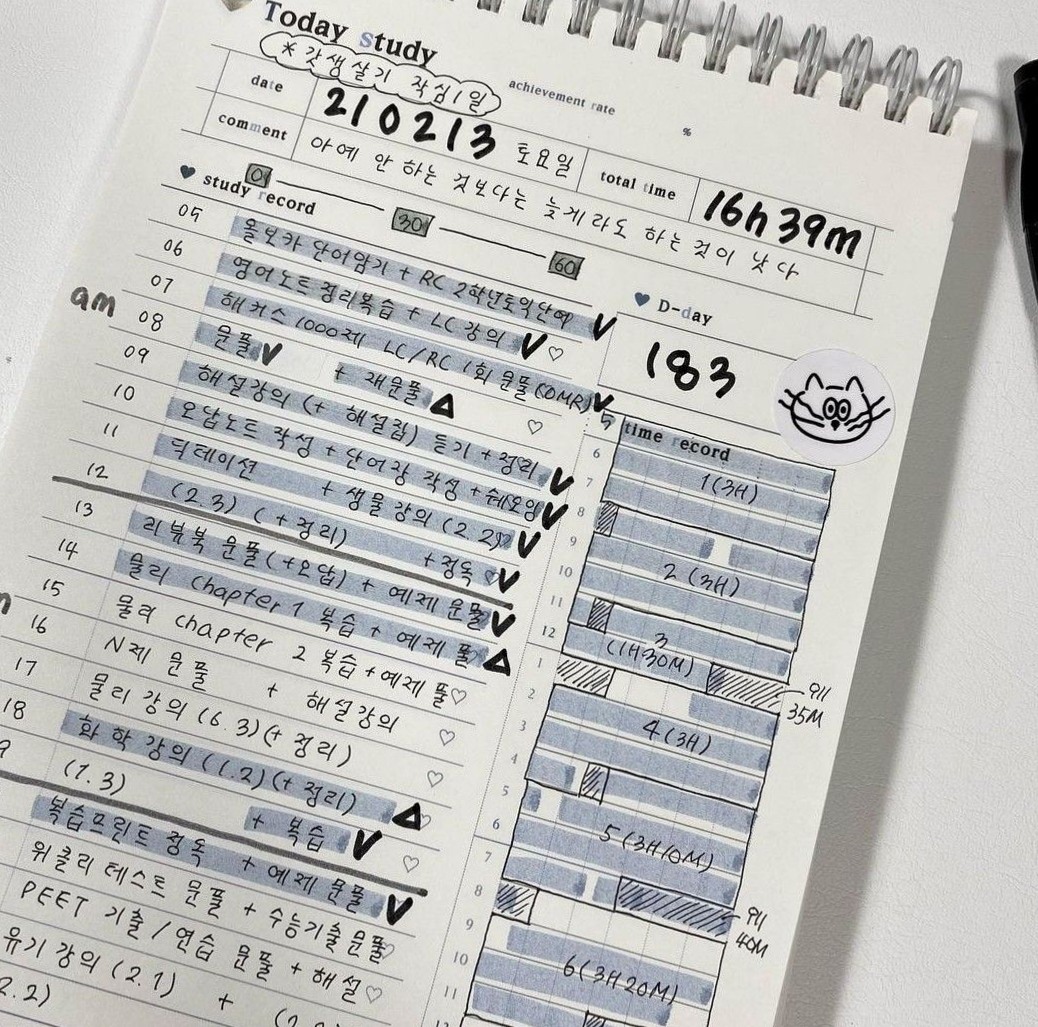 Today study
* 갓생살기 작심1일
achievement rate
%
date 210213 토요일
total time 16h 39m
comment 아예 안 하는 것보다는 늦게라도 하는 것이 낫다
study record
0 30 60
D-day
183
am
05 올보카 단어암기 + RC 2학년토익단어 V
06 영어노트 정리복습 + LC 강의 V
07 해커스 1000제 LC/RC 1회 문풀(OMR) V
08 문풀 V + 재문풀 Δ
09 해설강의 (+ 해설집) 듣기 + 정리 V
10 오답노트 작성 + 단어장 작성 + 쉐도잉 V
11 딕테이션 + 생물 강의 (2.2) V
12 (2.3) (+정리) +정독 V
13 리뷰북 문풀(+오답) + 예제 문풀 V
14 물리 chapter 1 복습 + 예제 풀 Δ
15 물리 chapter 2 복습 + 예제 풀
16 N제 문풀 + 해설강의
17 물리 강의 (6.3) (+ 정리)
18 화학 강의 (1.2) (+ 정리) Δ
9 (7.3) + 복습 V
복습프린트 정독 + 예제 문풀 V
위클리 테스트 문풀 + 수능기출문풀
PEET 기출/연습 문풀 + 해설
유기 강의 (2.1) +
2.2)
time record
5
6 1(3H)
7
8
9
10 2(3H)
11
12 3
(1H30M)
1
35M
2
3 4(3H)
4
5
6 5(3H10M)
7
8
40M
9
10 6(3H20M)
11
12